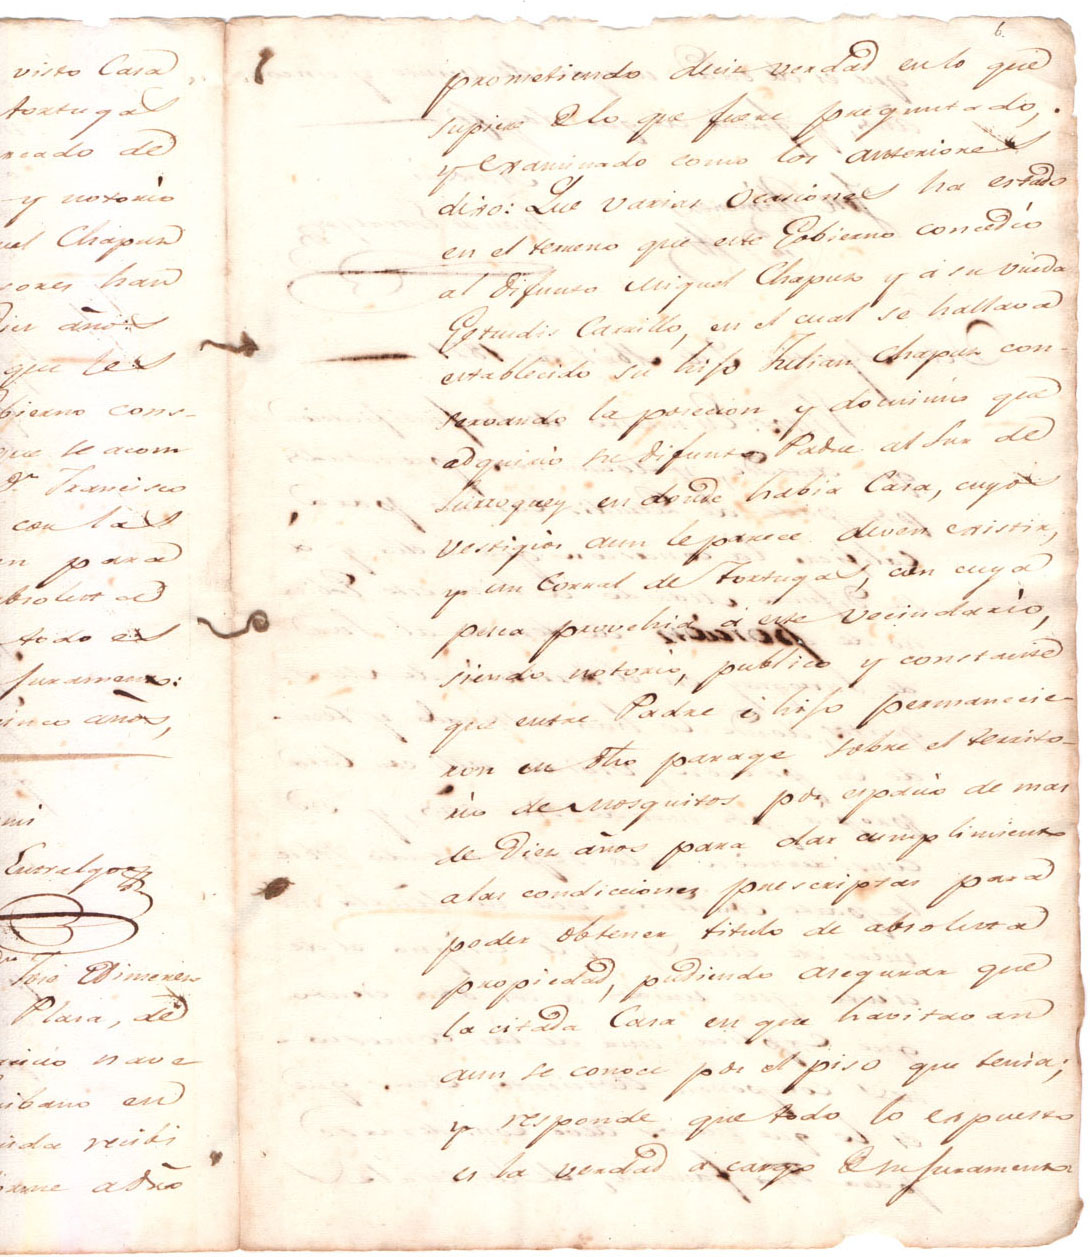 visto Casa
tortugas
rcado de
y notorio
uel Chapuz
sores han
Diez años
que les
bierno cons-
que se acom
Dn. Francisco
con las
n para
absoluta
todo es
juramento:
inco años,
mi
Entralgo
Dn. José Ximenez
Plasa, de
nave
ibano en
ida recibi
a Dios
6.
prometiendo decir verdad en lo que
supiere de lo que fuere preguntado,
y examinado como los anteriores
dixo: Que varias ocasiones ha estado
en el terreno que este Gobierno concedio
al difunto Miguel Chapuz y á su viuda
Estudis Carrillo, en el cual se hallava
establecido su hijo Julian Chapuz con-
servando la posecion y dominio que
adquirio su difunto Padre al Sur de
Surroquey en donde habia Casa, cuyos
vestigios aun le parece deven existir,
y un Corral de Tortugas, con cuya
pesca provehia á este vecindario,
siendo notorio, publico y constante
que entre Padre é hijo permanecie-
ron en dho parage sobre el territo-
rio de Mosquitos por espacio de mas
de Diez años para dar cumplimiento
a las condicciones prescriptas para
poder obtener titulo de absoluta
propiedad, pudiendo asegurar que
la citada Casa en que havitavan
aun se conoce por el piso que tenia;
y responde que todo lo espuesto
es la verdad a cargo de su juramento